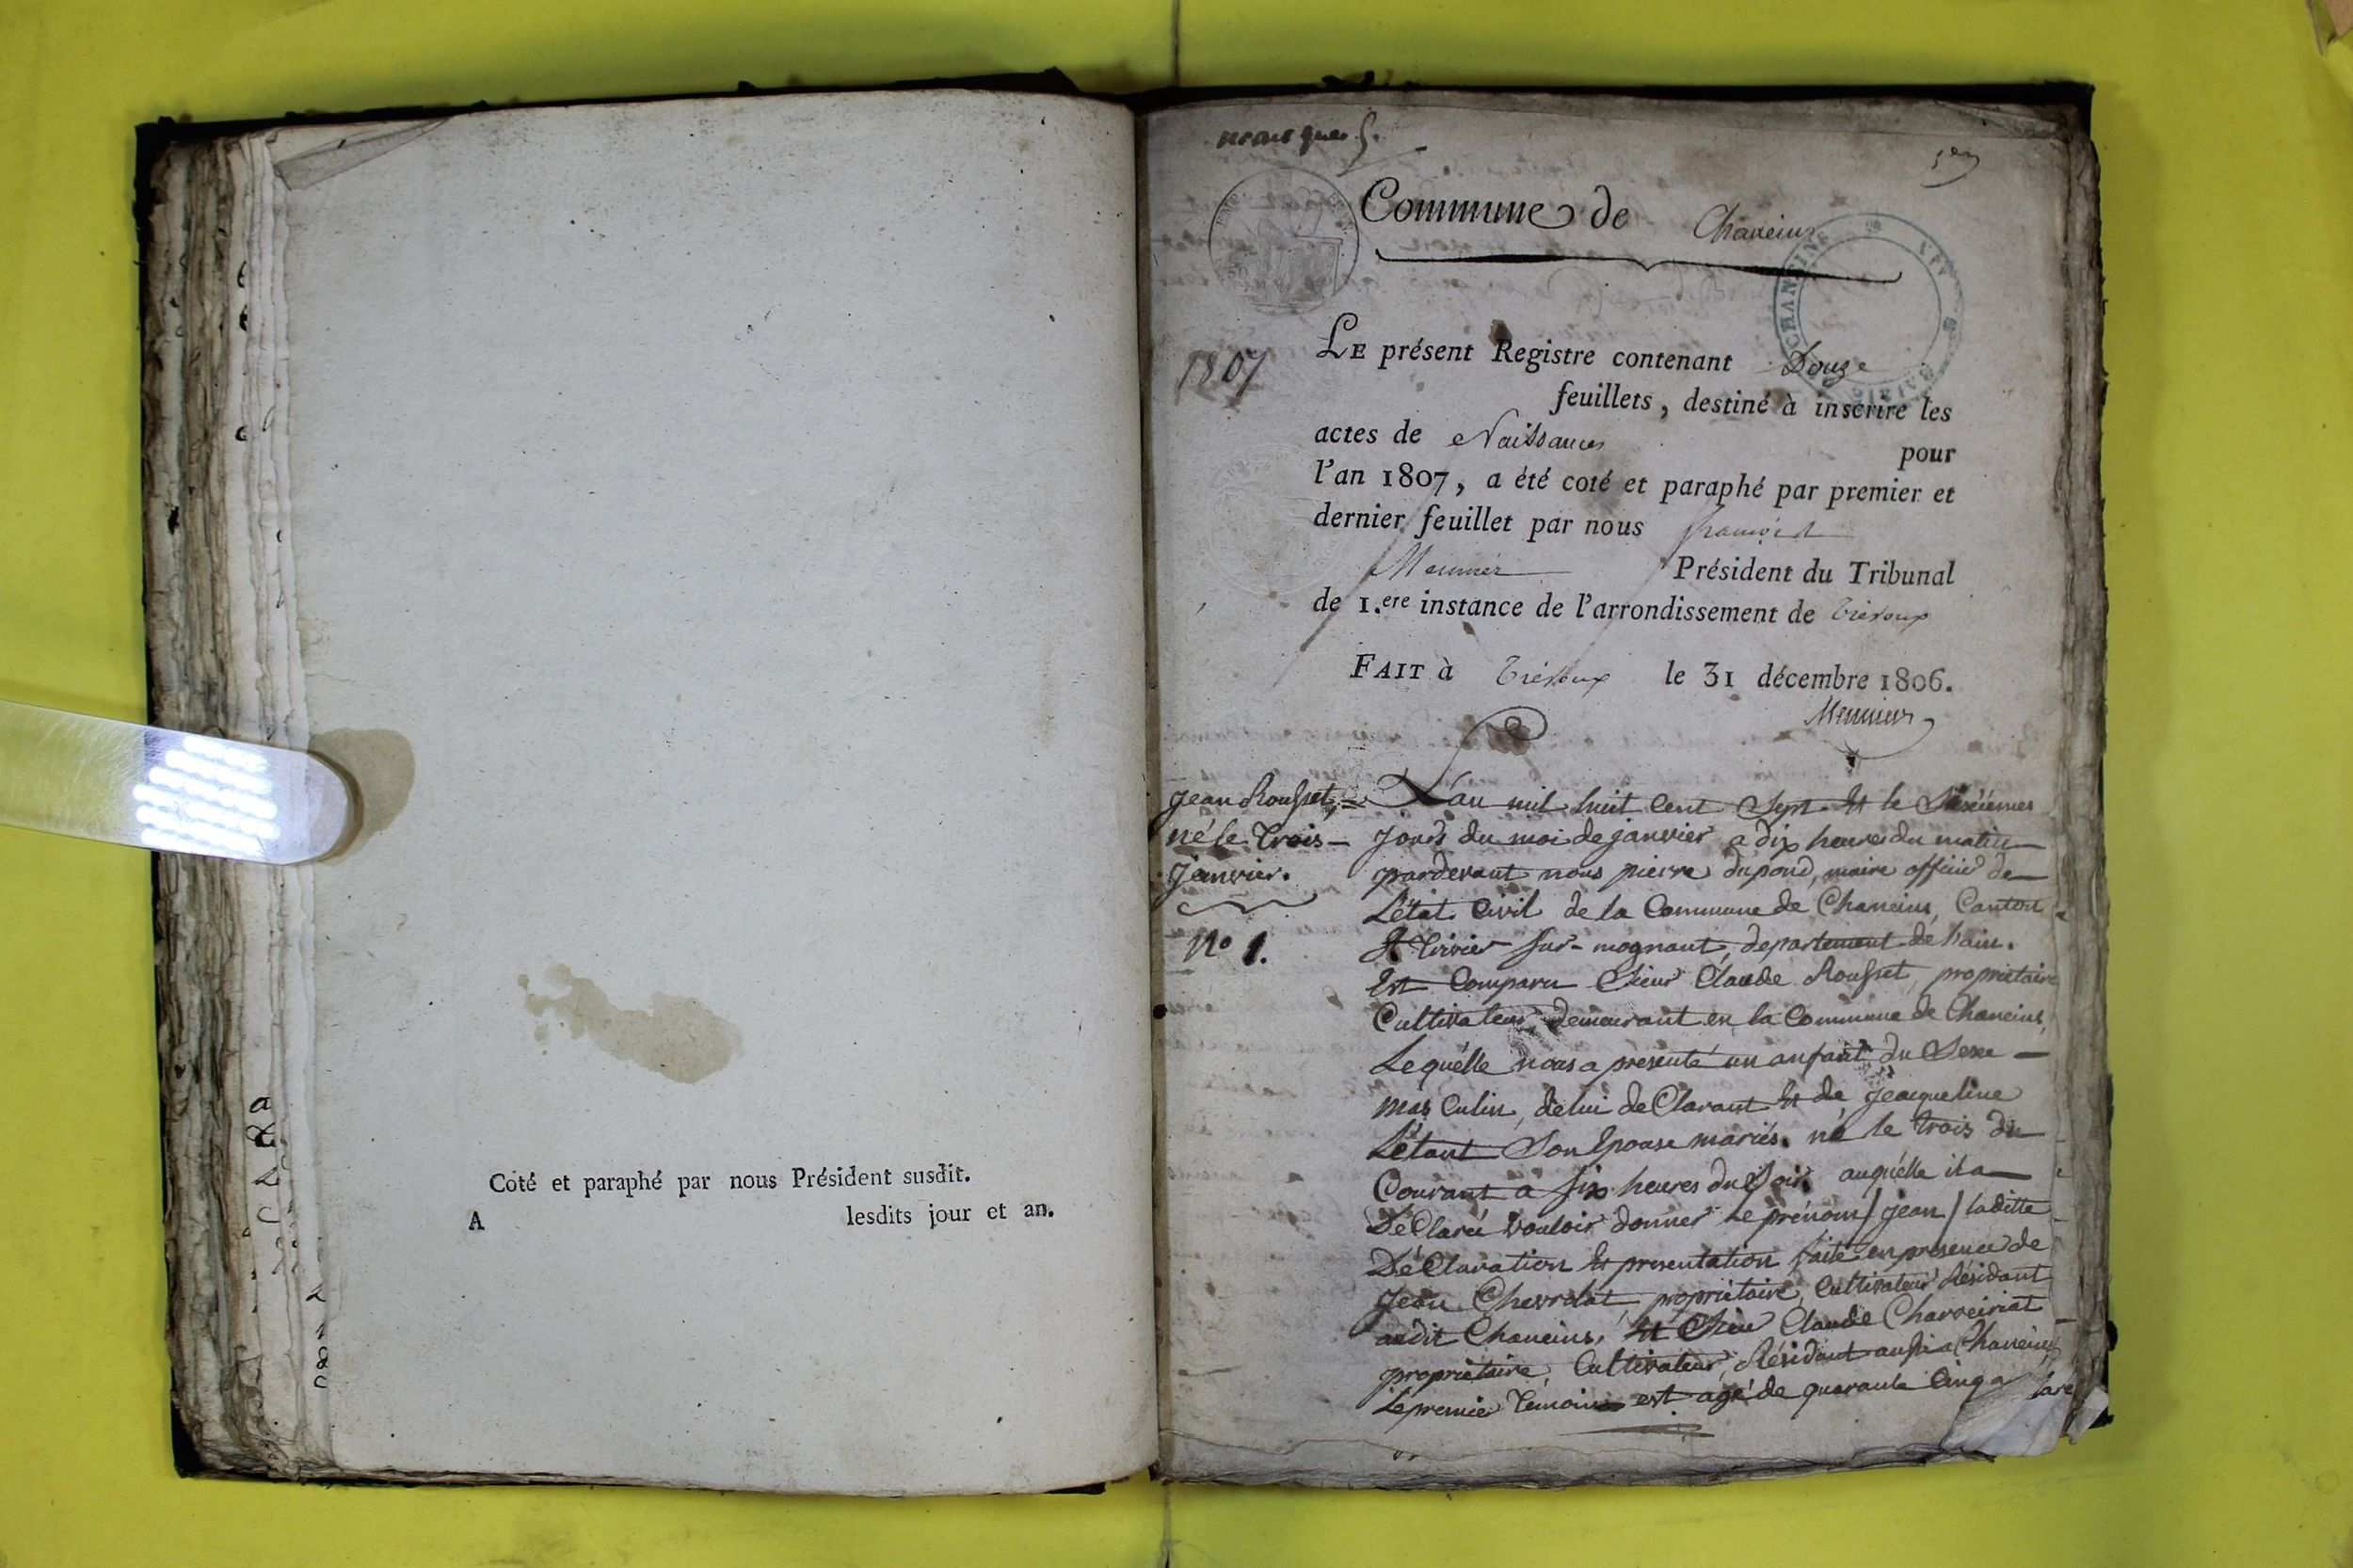 Coté et paraphé par nous Président susdit.
A lesdits jour et an.
1er
Commune de Chaneins
CHANEINS
MAIRIE
1807
LE présent Registre contenant Douze
feuillets, destiné à inscrire les
actes de Naissances pour
l'an 1807, a été coté et paraphé par premier et
dernier feuillet par nous François
Meunier Président du Tribunal
de 1.ere instance de l'arrondissement de Trévoux
FAIT à Trévoux le 31 décembre 1806.
Meunier
Jean Rousset,
né le trois
Janvier.
N° 1.
L'an mil huit Cent Sept Et le Sixiémes
Jours du moi de janvier a dix heures du matin
pardevant nous pierre dupond, maire officié de
L'état Civil de la Commune de Chaneins, Canton
St trivier sur-mognant, departement de hain.
Est Comparu Sieur Claude Rousset, proprietaire
Cultivateur, demeurant en la Commune de Chaneins,
Le quélle nous a presenté un anfant du Sexe
masculin, de lui deClarant Et de Jeacqueline
Létant Son Epouse mariés. né le trois du
Courant a six heures du Soir auquélle il a
DéClaréé vouloir donner Le prénom / Jean / laditte
DéClaration Et presentation faite en presence de
Jean Chevrolat, propriétaire, Cultivateur Résidant
audit Chaneins, Et Sieur Claude Charveiriat
propriétaire, Cultivateur, Résidant aussi a Chaneins,
Le premier Témoins est agé de quarante Cinq a